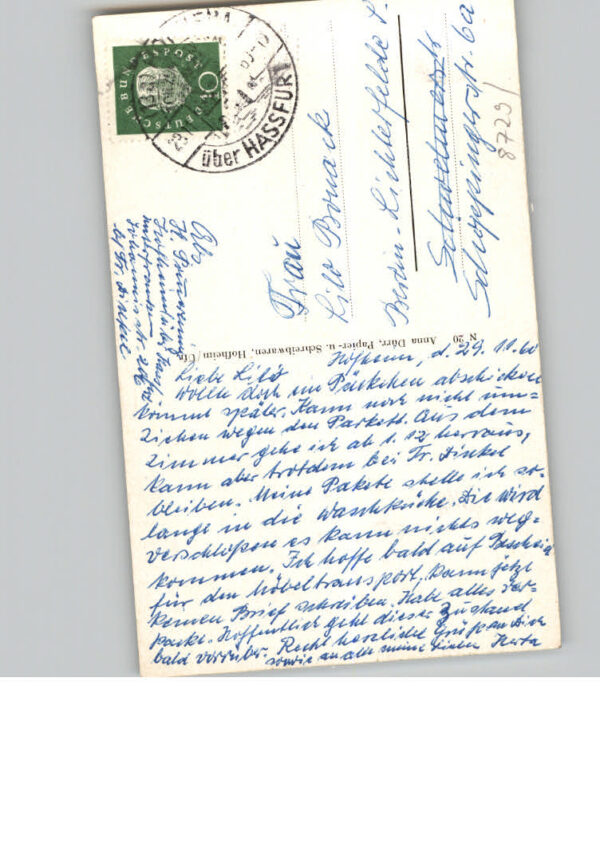 DEUTSCHE BUNDESPOST
10
über HASSFURT
Frau
Lilo Bonack
Berlin-Lichterfelde
Schöppingerstr. 6a
8729
Abs.
H.
bei Fr. Dinkel
N 20 Anna Dürr, Papier- u. Schreibwaren, Hofheim/Ufr.
Hofheim, d. 29.11.60
Liebe Lilo
wollte doch ein Päckchen abschicken
kommt später. Kann noch nicht um-
ziehen wegen den Parkett. Aus dem
Zimmer gehe ich ab 1.12 herraus,
kann aber trotzdem bei Fr. Dinkel
bleiben. Meine Pakete stelle ich so-
lange in die Waschküche. Die wird
verschloßen es kann nichts weg-
kommen. Ich hoffe bald auf Bescheid
für den Möbeltransport, kann jetzt
keinen Brief schreiben. Habe alles ver-
packt. Hoffentlich geht dieser Zustand
bald vorrüber. Recht herzliche Grüße an Dich
sowie an alle meine Lieben Herta